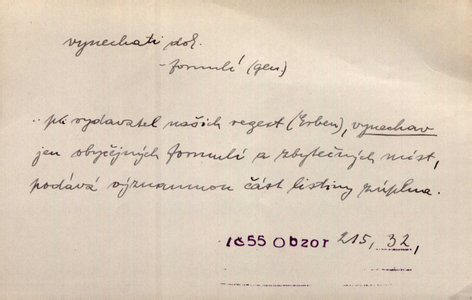 vynechati dok.
- formulí (gen)
.. pk vydavatel našich regest (Erben), vynechav
jen obyčejných formulí a zbytečných míst,
podává významnou část listiny zúplna.
1855 Obzor 215, 32,